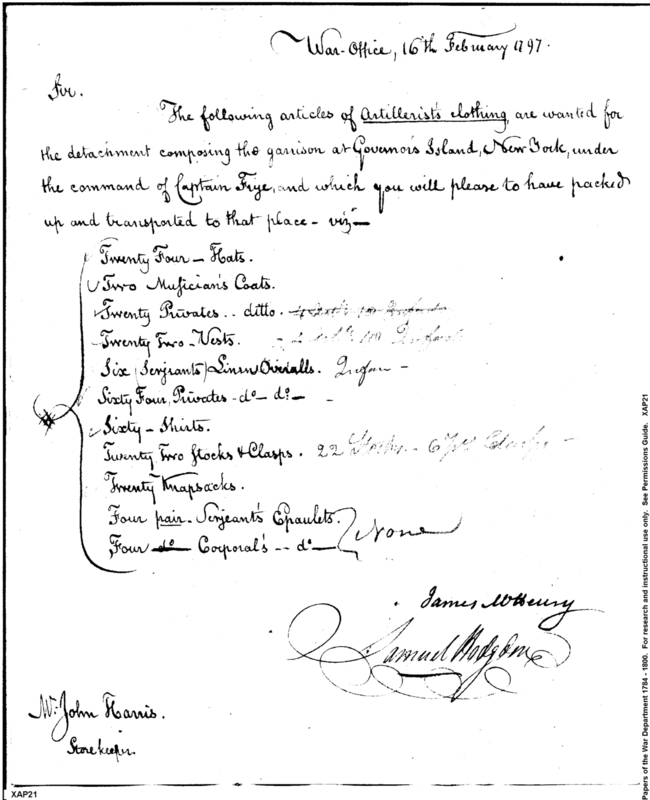 War-Office, 16th February 1797.
Sir.
The following articles of Artillerist's clothing, are wanted for
the detachment composing the garrison at Governor's Island, New York, under
the command of Captain Frye, and which you will please to have packed
up and transported to that place - viz -
Twenty Four - Hats.
Two Musician's Coats.
Twenty Privates .. ditto.
Twenty Two - Vests.
Six (Serjeants) Linen Overalls.
Sixty Four, Privates - do - do -
Sixty - Shirts.
Twenty Two Stocks & Clasps. 22 Stocks - 6
Twenty Knapsacks.
Four pair - Serjeant's Epaulets.
Four do Corporal's -- do - None
James McHenry
Samuel Hodgdon
Mr. John Harris.
Storekeeper.
XAP21
Papers of the War Department 1784 - 1800. For research and instructional use only. See Permissions Guide. XAP21